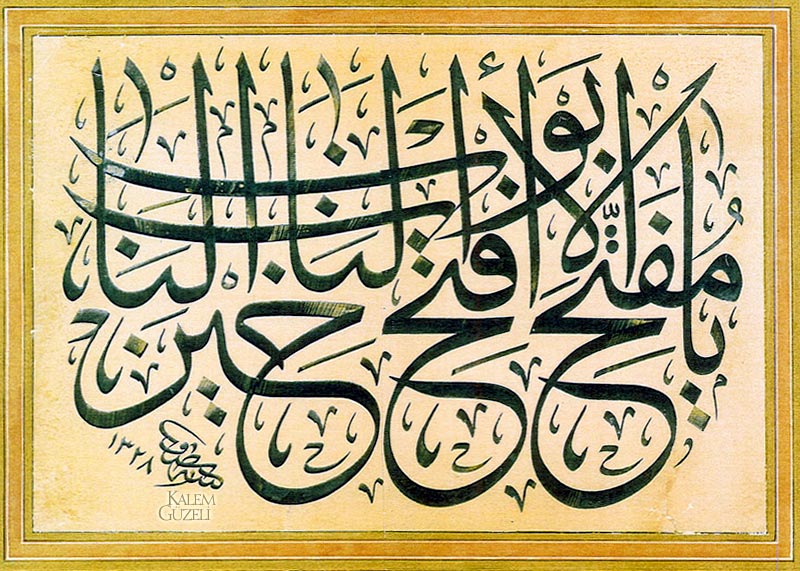 يا مفتح الأبواب افتح لنا خير الباب
١٣٢٨
KALEM
GÜZELİ